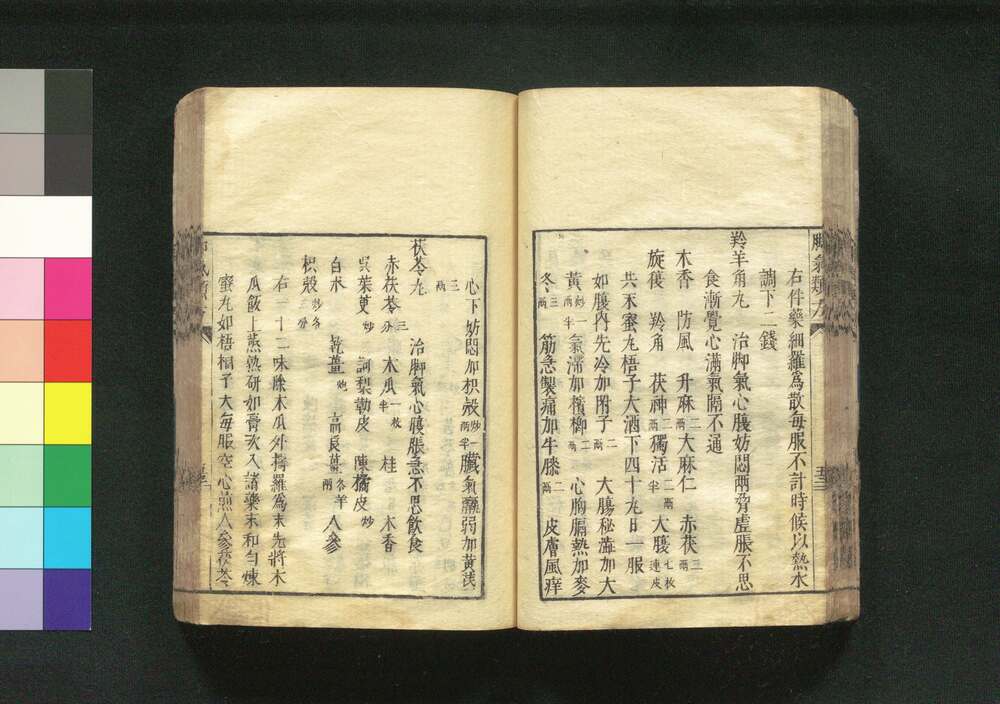 脚氣類方
右件藥細羅爲散每服不計時候以熱水
調下二錢
羚羊角丸　治脚氣心腹妨悶兩脅虛脹不思
食漸覺心滿氣隔不通
木香　防風　升麻二兩大麻仁　赤茯三兩
旋復　羚角　茯神二兩獨活二兩半大腹七枚連皮
共末蜜丸梧子大酒下四十九日一服
如腹內先冷加附子二兩　大腸秘澁加大
黄炒一兩半氣滯加檳榔二兩心胸膈熱加麥
冬三兩　筋急製痛加牛膝二兩　皮膚風痒
三兩　心下妨悶加枳殻炒一兩半臟氣羸弱加黄茋
茯苓丸　治脚氣心腹脹急不思飲食
赤茯苓三分　木瓜一枚半　桂　木香
吳茱萸炒　訶梨勒皮　陳橘皮炒
白朮　乾薑炮　高良薑各半兩　人參
枳殻炒各三分
右一十二味除木瓜外擣羅爲末先將木
瓜飯上蒸熟研如膏次入諸藥末和勻煉
蜜丸如梧桐子大每服空心煎人參茯苓